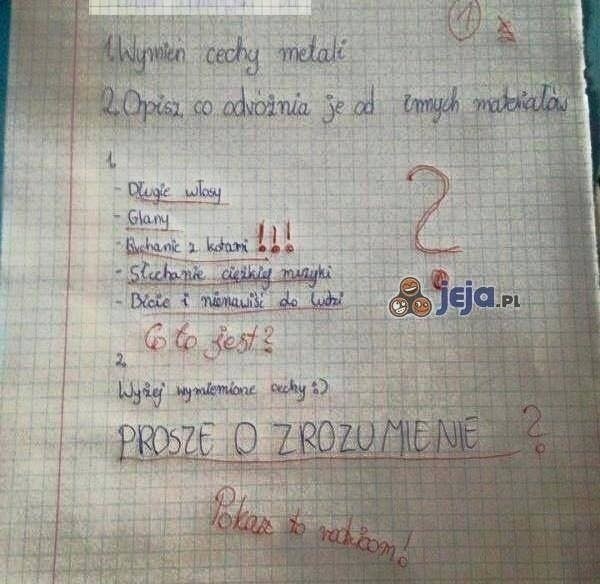 1
1. Wymień cechy metali
2. Opisz co odróżnia je od innych materiałów
1.
- Długie włosy
- Glany
- Ruchanie z kotami !!!
- Słuchanie ciężkiej muzyki
- Picie i nienawiść do ludzi
?
jeja.PL
Co to jest?
2.
Wyżej wymienione cechy :)
PROSZE O ZROZUMIENIE ?
Pokaż to rodzicom!